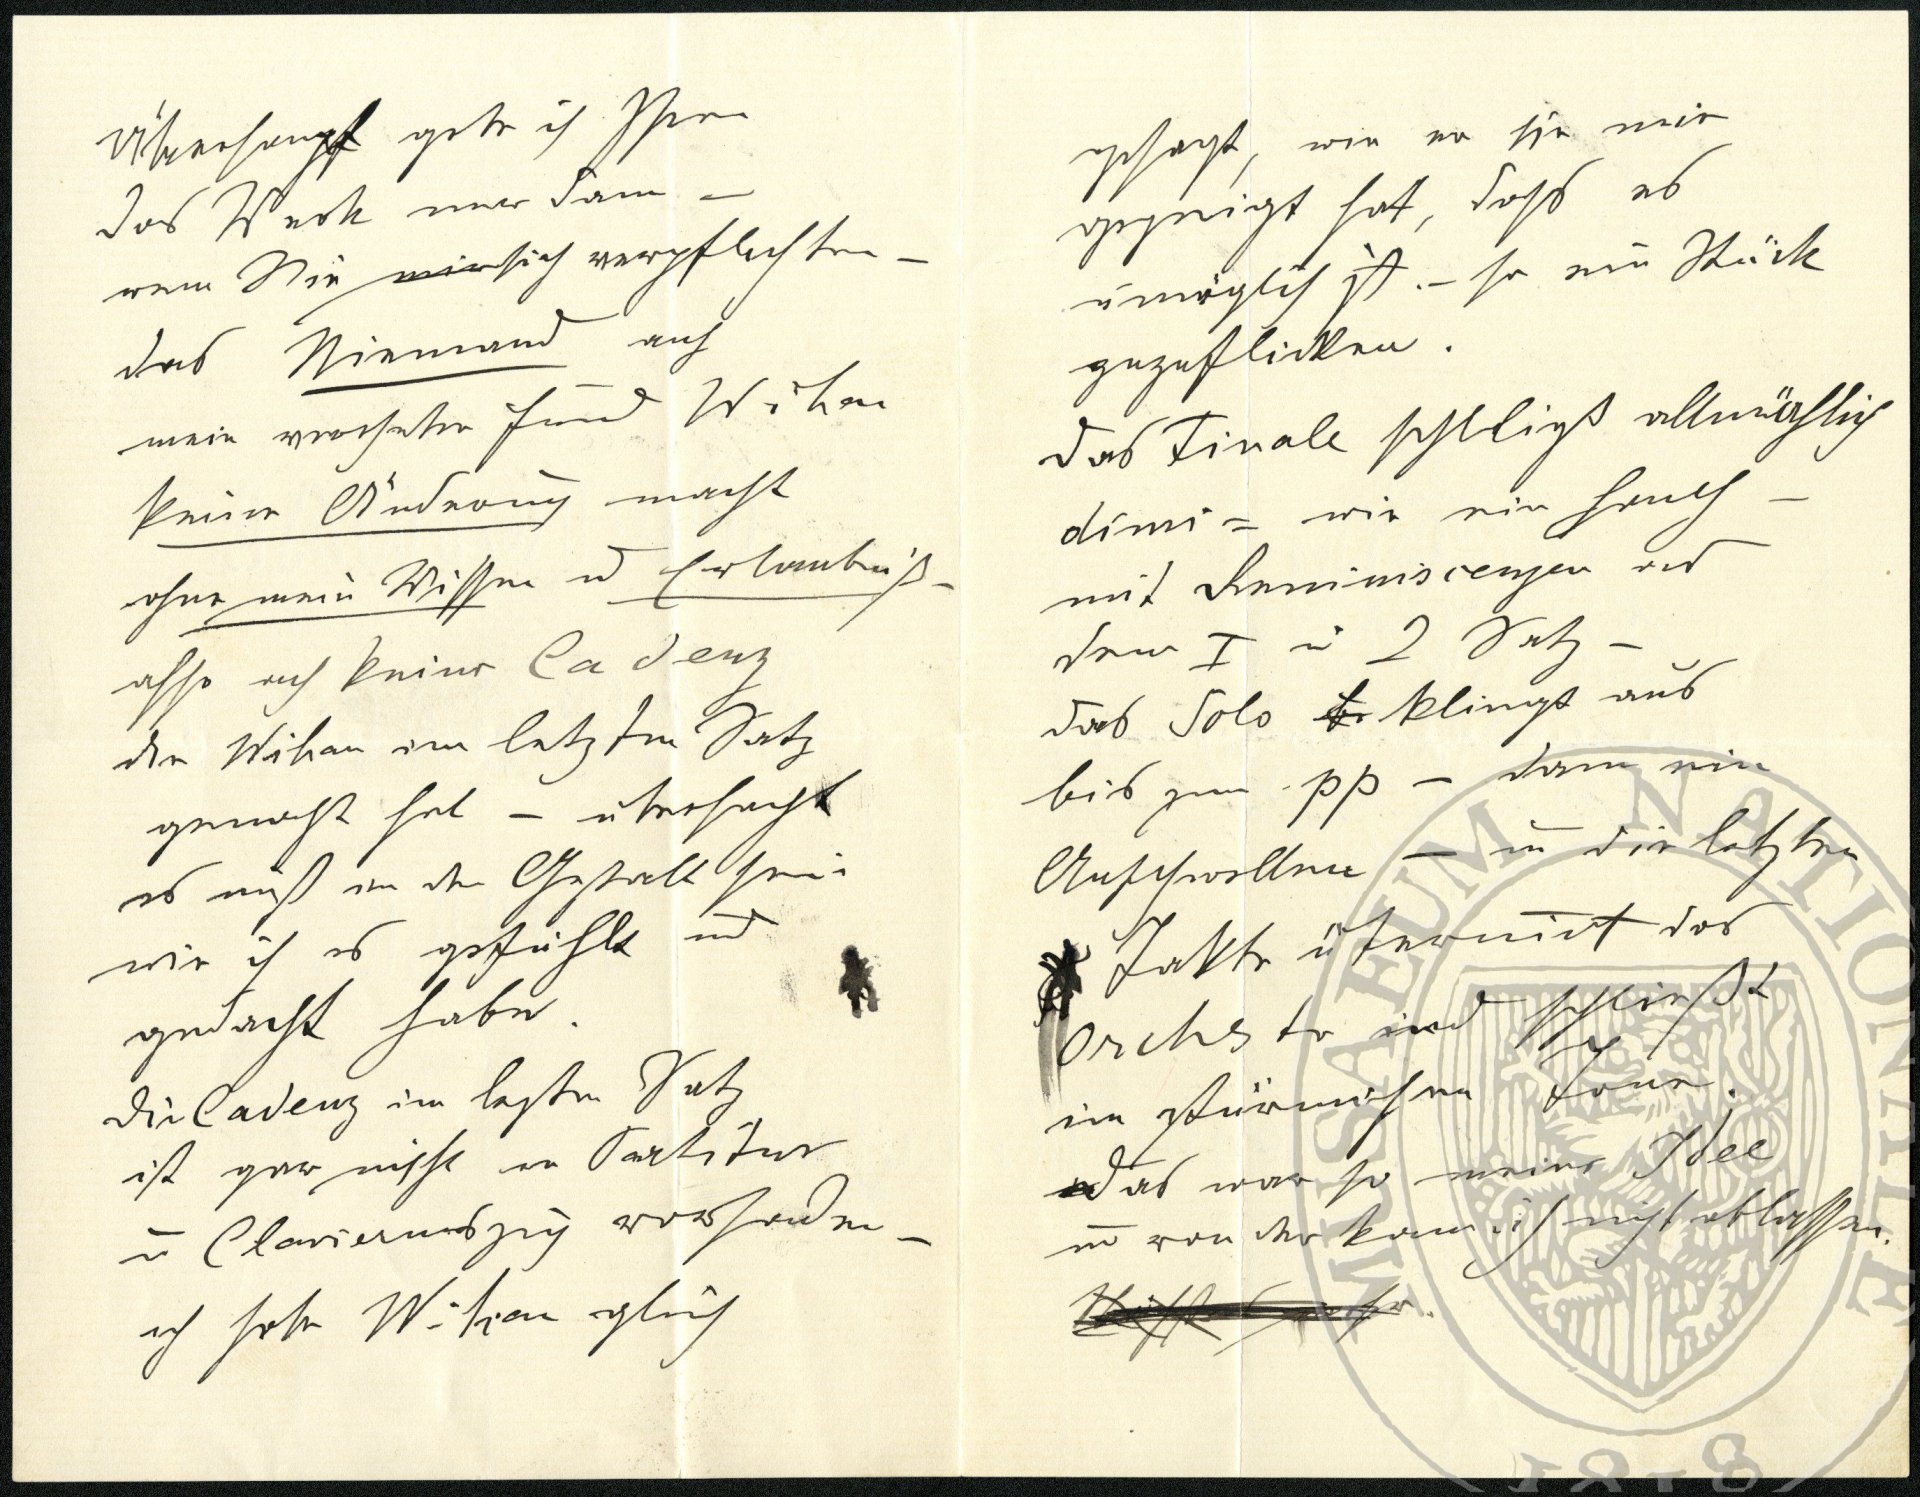 Überhaupt gebe ich Ihnen
das Werk nur dann –
wenn Sie sich verpflichten –
das Niemand auch
mein verehrter Freund Wihan
keine Änderung macht
ohne mein Wissen u Erlaubniß –
also auch keine Cadenz
die Wihan im letzten Satz
gemacht hat – überhaupt
es muß in der Gestalt sein
wie ich es gefühlt und
gedacht habe.
Die Cadenz im letzten Satz
ist gar nicht in Partitur
u Clavierauszug vorhanden –
ich habe Wihan gleich
gesagt, wie er sie mir
gezeigt hat, dass es
unmöglich ist. – so ein Stück
zuflicken.
Das Finale schließt allmählich
dimi = wie ein Hauch –
mit Reminiscenzen
dem I u 2 Satz –
das Solo klingt aus
bis zum pp – dann ein
Anschwellen – u die letzten
Takte übernimt das
Orchester und schließt
im stürmischen Tone.
Das war so meine Idee
u von der kann ich nicht ablassen.
MUSAEUM NATIONALE
1818